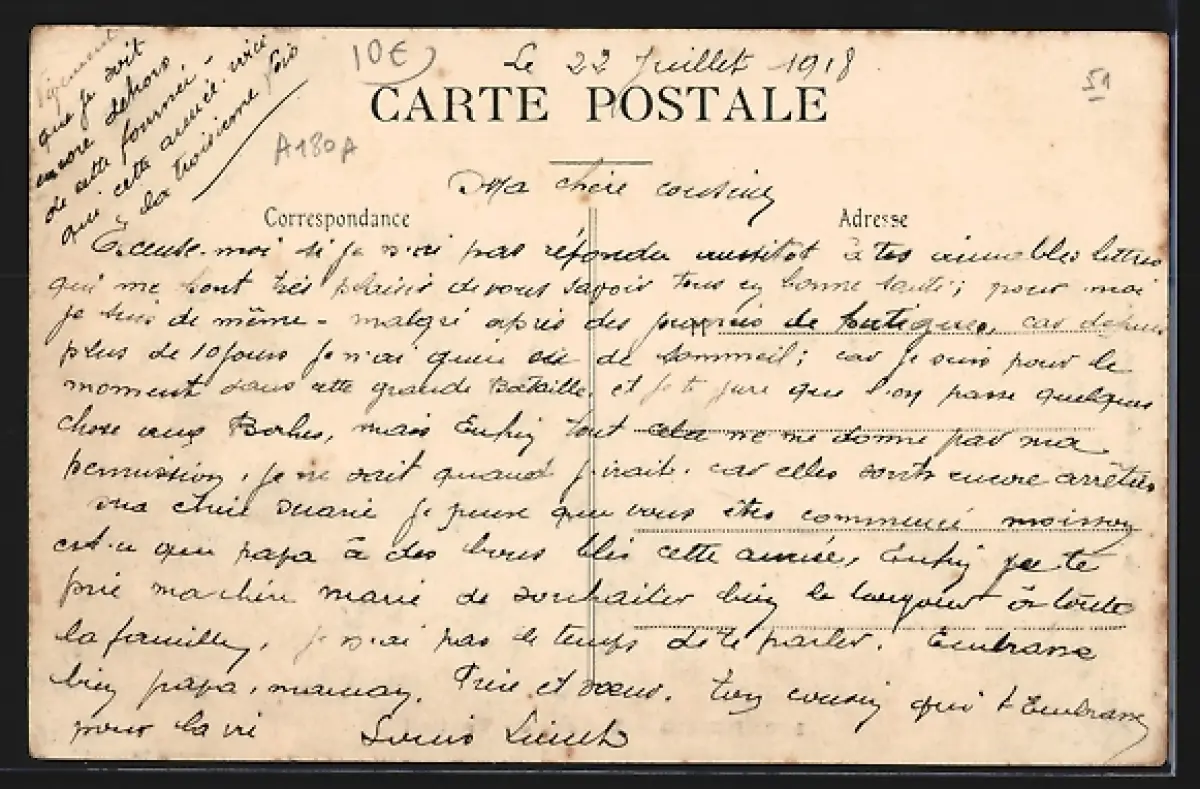 Le 22 Juillet 1918
10€
51
CARTE POSTALE
A180A
que je soit
encore dehors
de cette fournée -
qui cette année. voici
la troisieme fois
Ma chère cousine
Correspondance
Adresse
Excuse-moi si je n'ai pas répondu aussitot à tes aimables lettres
qui me font très plaisir de vous savoir tous en bonne santé; pour moi
je suis de même - malgré après des de fatigues, car depuis
plus de 10 jours je n'ai de sommeil; car je suis pour le
moment dans cette grande Bataille, et je te jure que l'on passe quelques
chose aux Boches, mais Enfin tout cela ne me donne pas ma
permission, je ne sait quand j'irait. car elles sonts encore arrêtées
ma chère Marie je pense que vous êtes commencé moisson
est-ce que papa à des bons blés cette année, Enfin je te
prie ma chère marie de souhaiter bien le bonjour à toute
la famille, je n'ai pas le temps de te parler. Embrasse
bien papa, maman, Frère et soeur. Ton cousin qui t'Embrasse
pour la vie
Louis